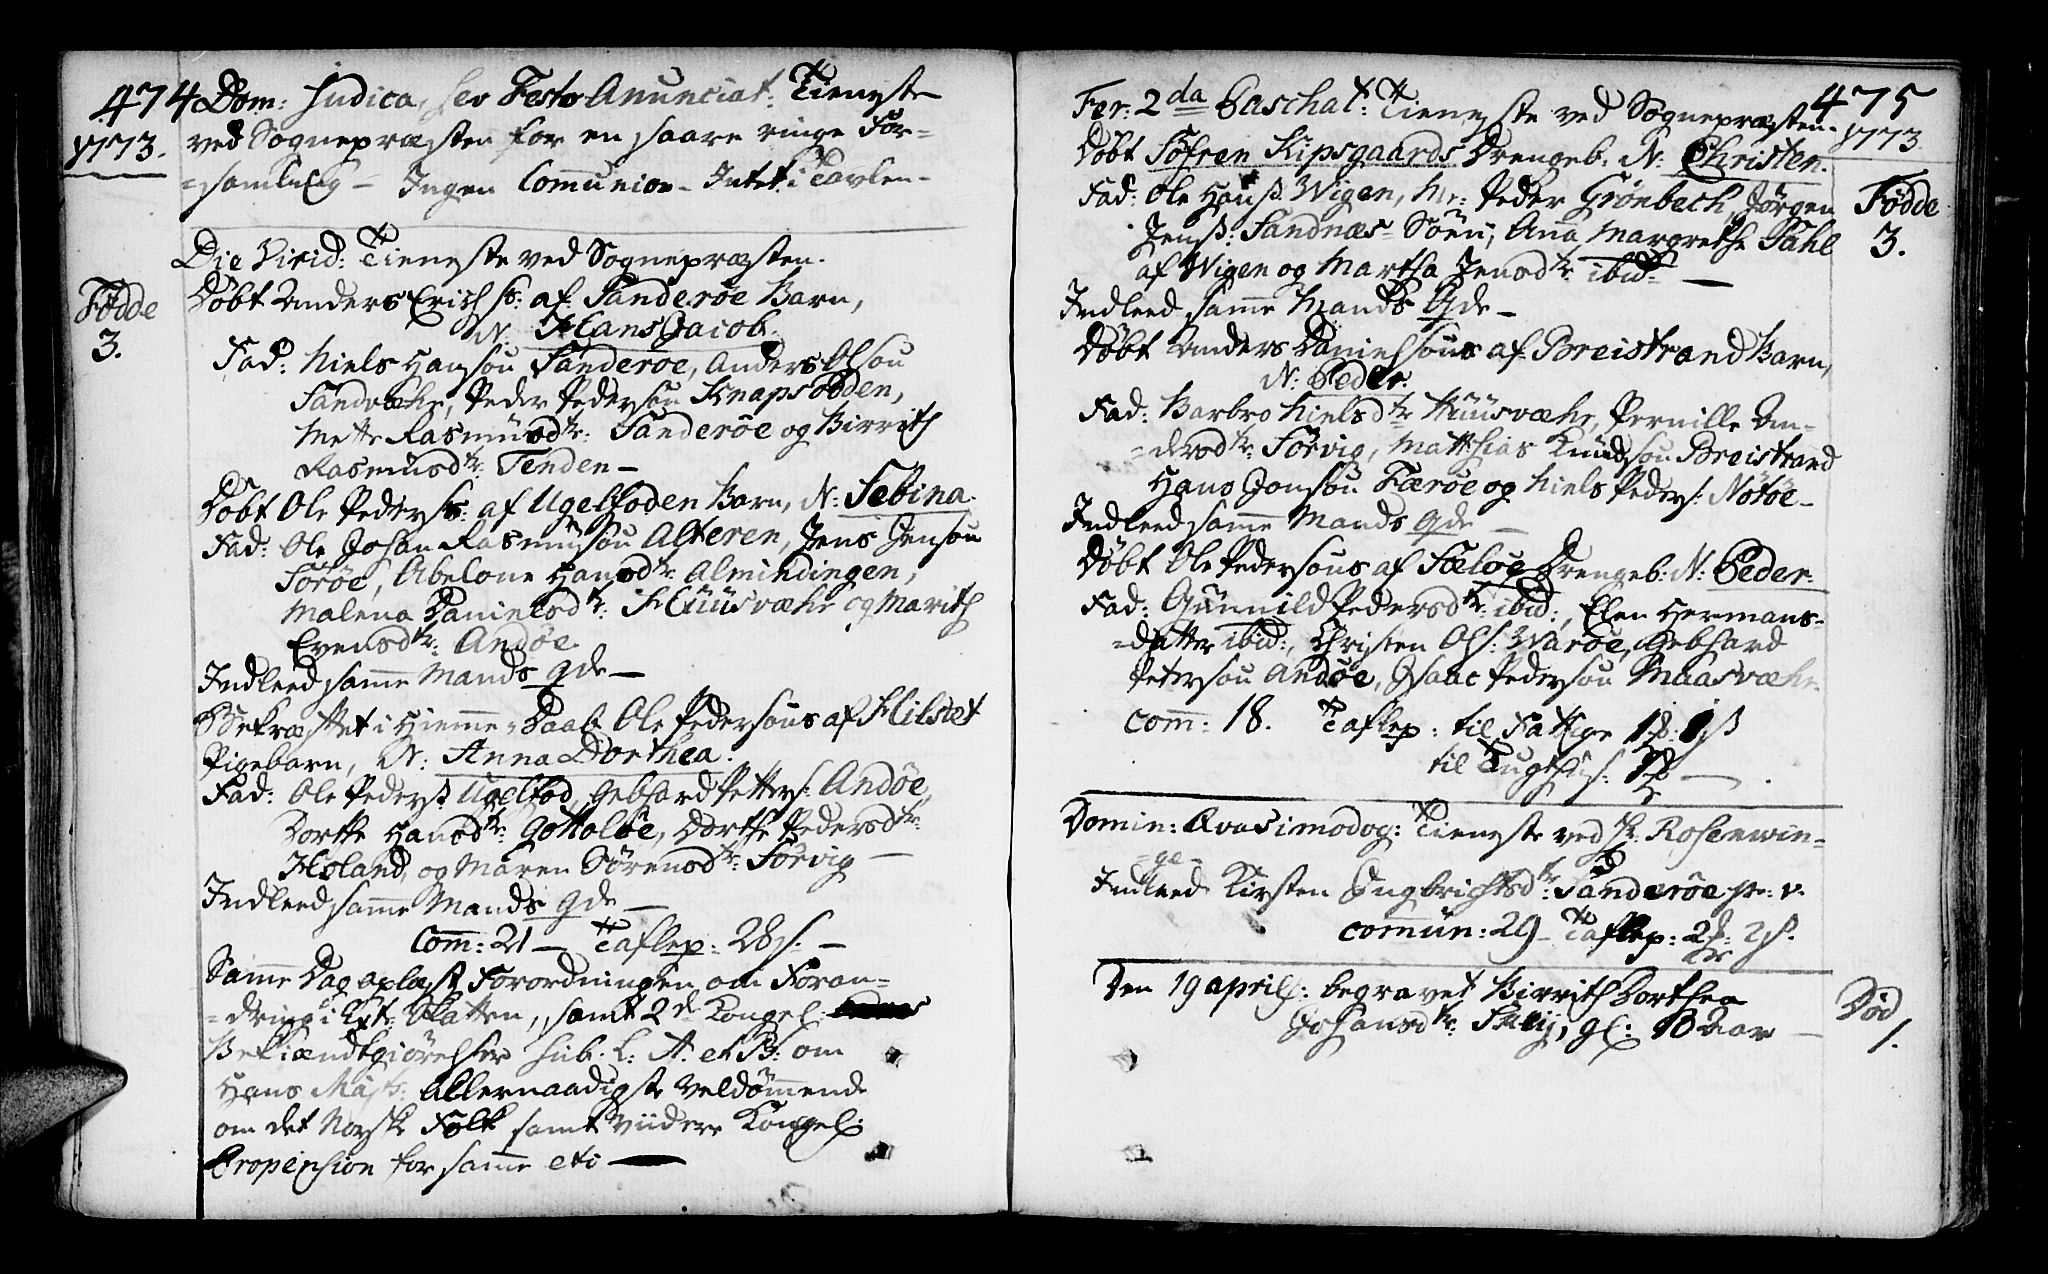 474
1773.
Dom: Judica, seu Festo Anunciat: Tieneste
ved Sognepræsten for en saare ringe For-
=samling – Ingen Communion – Intet i Tavlen –
Die Virid: Tieneste ved Sognepræsten.
Fødde
3.
Døbt Anders Erichs: af Sanderøe Barn,
N: Hans Jacob.
Fad: Niels Hansøn Sanderøe, Anders Olsøn
Sandvæhr, Peder Pedersøn Knapsodden,
Mette Rasmusdtr: Sanderøe og Birrith
Rasmusdtr: Tenden –
Døbt Ole Peders: af Ugelstoden Barn, N: Sebina.
Fad: Ole Johan Rasmusøn Alsteren, Jens Jensøn
Sørøe, Abelone Hansdtr: Almindingen,
Malena Danielsdtr: Huusvæhr og Marith
Evensdtr: Andøe
Indleed samme Mands Qde –
Bekræftet i Hiemme-Daab Ole Pedersøns af Hilstet
Pigebarn, N: Anna Dorthea.
Fad: Ole Peders: Ugelstod, Gebhard Petters: Andøe,
Dorthe Hansdtr: Goksløe, Dorthe Pedersdtr:
Hsland, og Maren Sørensdtr: Sørvig –
Indleed samme Mands Qde –
Com: 21 – Taflep: 28s. –
Samme Dag oplæst Forordningen om Foran-
=dring i Ext: Skatten, samt 2de Kongel:
Bekiændtgiørelser sub. L: A. et B: om
Hans Majts: Allernaadigste Veldømmende
om det Norske Folk samt viidere Kongel:
Propension for samme etc –
475
1773.
Fer: 2da Paschat: Tieneste ved Sognepræsten.
Døbt Søfren Kipsgaards Drengeb: N: Christen.
Fødde
3.
Fad: Ole Hans: Wigen, Mr: Peder Grønbech, Jørgen
Jens: Sandnæs-Søen, Ana Margrethe Dahl
af Wigen og Martha Jensdtr ibid: –
Indleed samme Mands Qde –
Døbt Anders Danielsøns af Breistrand Barn,
N: Peder.
Fad: Barbro Nielsdtr Huusvæhr, Pernille An-
=dersdtr: Sørvig, Matthias Knudsøn Breistrand
Hans Jonsøn Færøe og Niels Peders: Notøe –
Indleed samme Mands Qde –
Døbt Ole Pedersøns af Sæløe Drengeb: N: Peder.
Fad: Gunnild Pedersdtr: ibid:, Elen Hermans-
=datter ibid:, Christen Ols: Warøe, Gebhard
Petersøn Andøe, Isaac Pedersøn Maasvæhr.
Com: 18. Taflep: til Fattige
til Tugthus:
Domin: Qvasimodog: Tieneste ved Hr. Rosenwin-
=ge –
Indleed Kirsten Ingbrichtsdtr: Sanderøe
Commun: 29 – Taflep:
Den 19 april: begravet Birrith Dorthea
Johansdtr: gl:
Død
1.